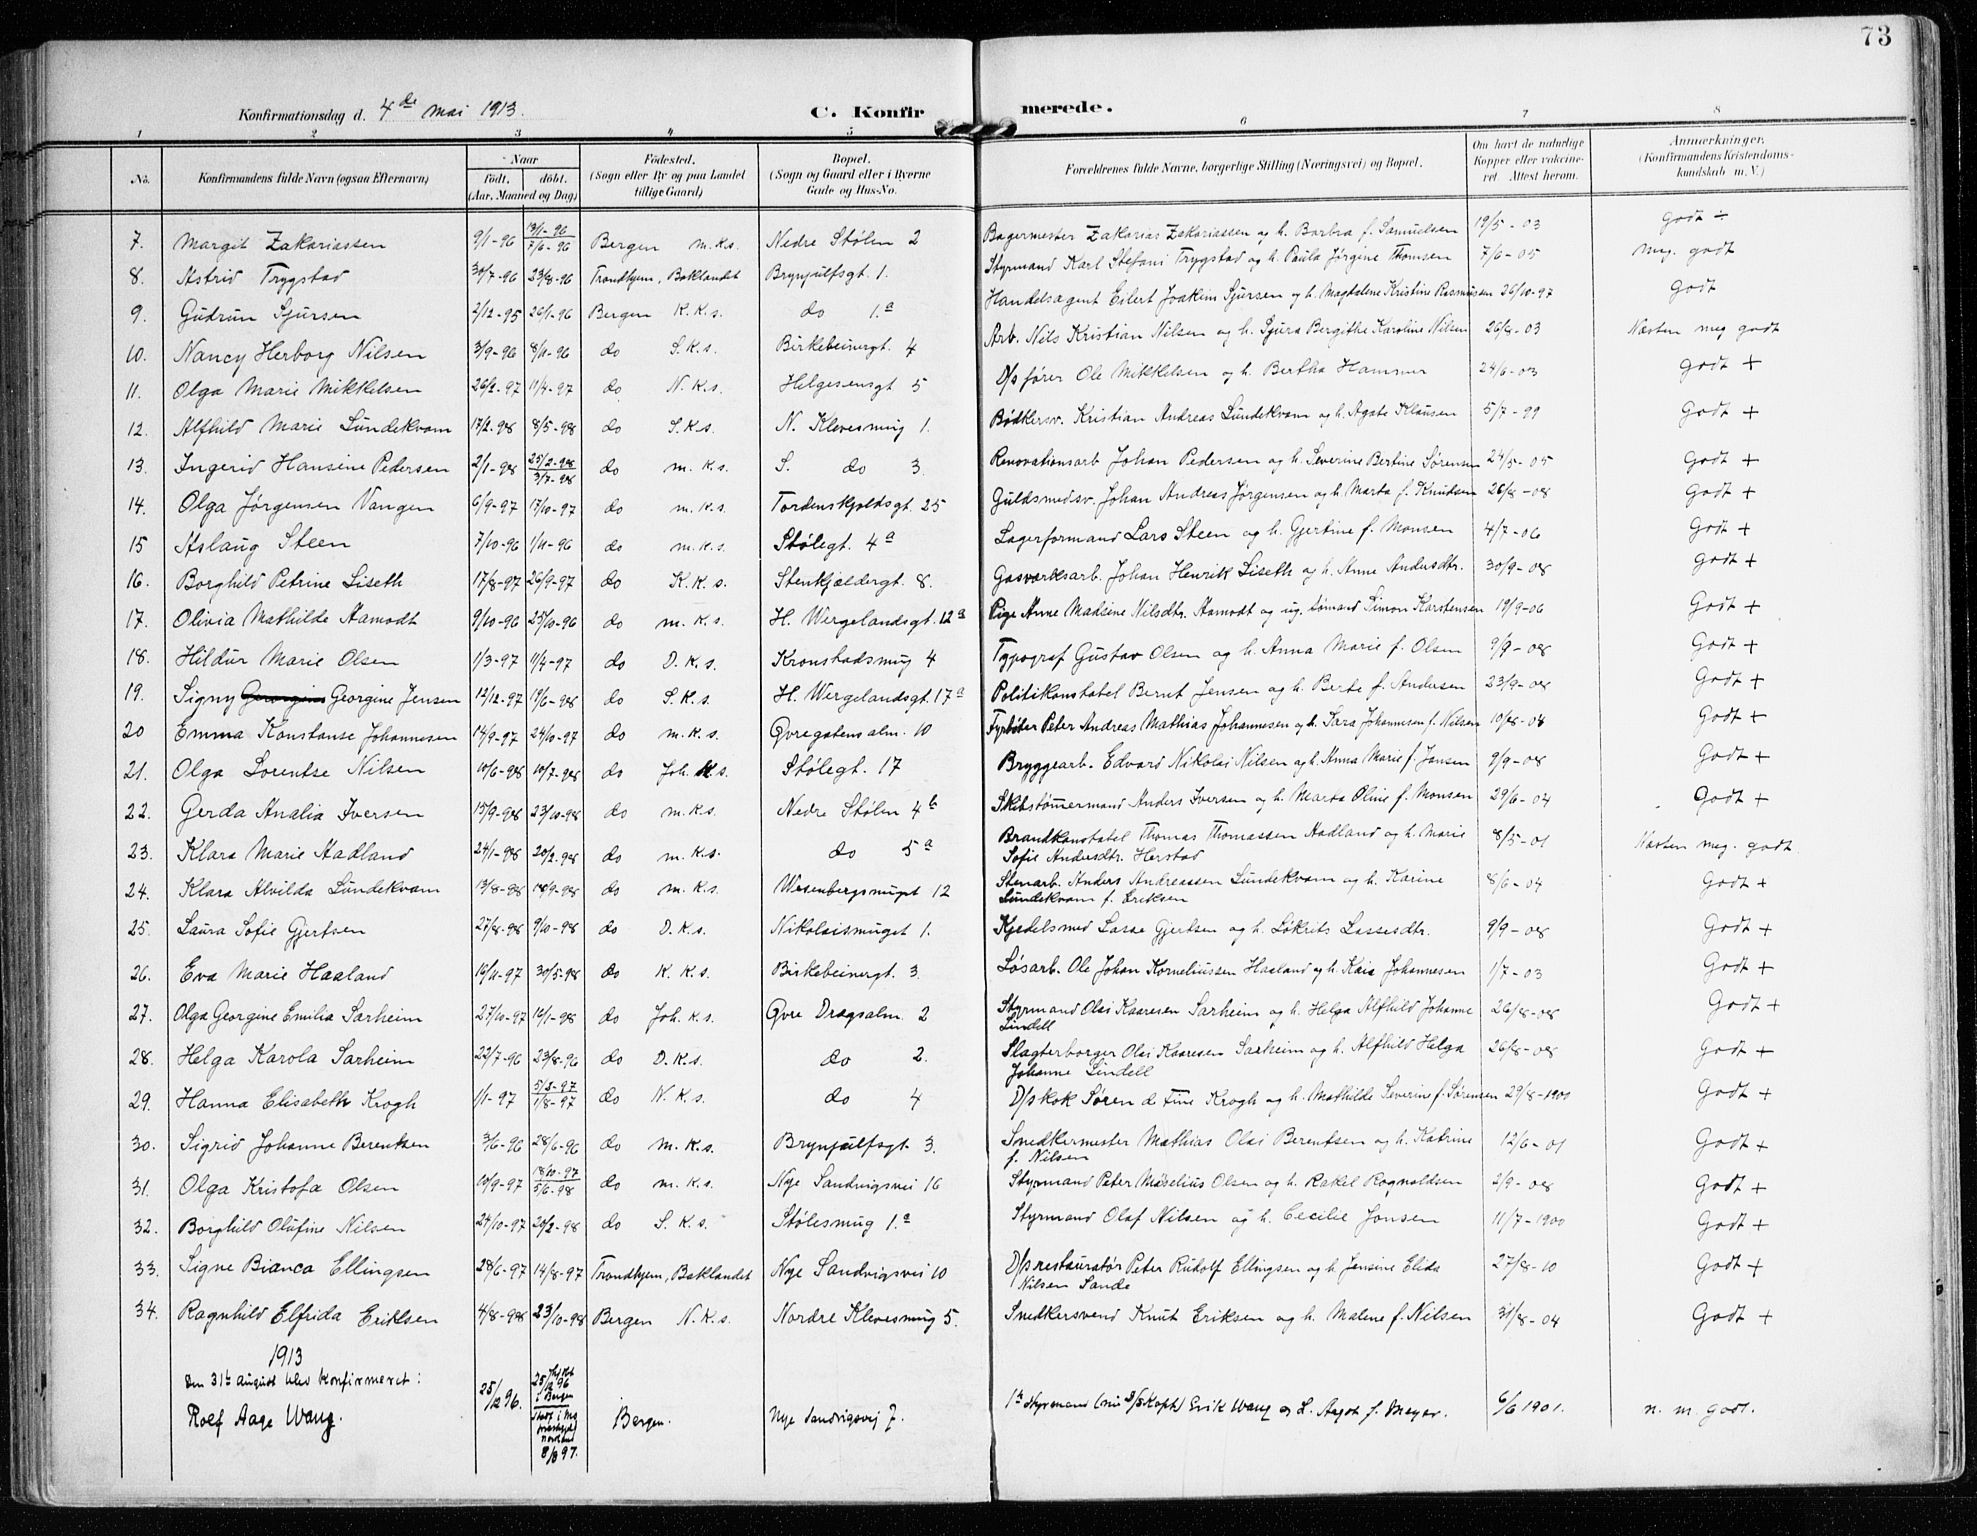 73
Konfirmationsdag d. 4de mai 1913. C. Konfirmerede.
1 2 3 4 5 6 7 8
No. Konfirmandens fulde Navn (ogsaa Efternavn) Naar Födt. döbt. (Aar, Maaned og Dag) Födested. (Sogn eller By og paa Landet tillige Gaard) Bopæl. (Sogn og Gaard eller i Byerne Gade og Hus-No. Forældrenes fulde Navne, borgerlige Stilling (Næringsvei) og Bopæl. Om havt de naturlige Kopper eller vakcineret. Attest herom. Anmærkninger. (Konfirmandens Kristendomskundskab m. V.)
7. Margit Zakariassen 9/1-96 13/1-96 7/6-96 Bergen M.K.s. Nedre Stølen 2 Bagermester Zakarias Zakariassen og h. Barbra f. Samuelsen 19/5-03 Godt ÷
8. Astrid Trygstad 30/7-96 23/8-96 Trondhjem, Baklandet Brynjulfsgt. 1. Styrmand Karl Stefani Trygstad og h. Paula Jørgine Thomsen 7/6-05 Meg. godt
9. Gudrun Sjursen 2/12-95 26/1-96 Bergen K.K.s. do 1.a Handelsagent Eilert Joakim Sjursen og h. Magdalene Kristine Rasmussen 26/10-97 Godt
10. Nancy Herborg Nilsen 3/9-96 8/11-96 do S.K.s. Birkebeinergt. 4 Arb. Nils Kristian Nilsen og h. Sjura Bergithe Karoline Nilsen 26/8-03 Næsten meg godt
11. Olga Marie Mikkelsen 26/2-97 11/4-97 do N.K.s. Helgesensgt 5 D/s fører Ole Mikkelsen og h. Bertha Hammer 24/6-03 Godt +
12. Alfhild Marie Lundekvam 17/2-98 8/5-98 do S.K.s. N. Klevesmug 1. Bødkersv. Kristian Andreas Lundekvam og h. Agate Klausen 5/7-99 Godt +
13. Ingerid Hansine Pedersen 2/1-98 25/2-98 3/7-98 do M.K.s. S. do 3. Renovationsarb Johan Pedersen og h. Severine Bertine Sørensen 24/5-05 Godt +
14. Olga Jørgensen Vangen 6/9-97 17/10-97 do M.K.s. Tordenskjoldsgt. 25 Guldsmedsv. Johan Andreas Jørgensen og h. Marta f. Knudsen 26/8-08 Godt +
15 Aslaug Steen 7/10-96 1/11-96 do M.K.s. Stølegt. 4a Lagerformand Lars Steen og h. Gjertine f. Monsen 4/7-06 Godt +
16. Borghild Petrine Liseth 17/8-97 26/9-97 do K.K.s. Stenkjældergt. 8. Gasværksarb. Johan Henrik Liseth og h. Anne Andersdtr. 30/9-08 Godt +
17. Olivia Mathilde Aamodt 9/10-96 25/10-96 do M.K.s. H. Wergelandsgt. 12a Pige Anne Madsine Nilsdtr. Aamodt og ug. Sømand Simon Karstensen 19/9-06 Godt +
18. Hildur Marie Olsen 1/3-97 11/4-97 do D.K.s. Kronstadsmug 4 Typograf Gustav Olsen og h. Anna Marie f. Olsen 9/9-08 Godt +
19. Signy Georgine Jensen 12/12-97 19/6-98 do S.K.s. H. Wergelandsgt. 17a Politikonstabel Bernt Jensen og h. Berte f. Andersen 23/9-08 Godt +
20 Emma Konstanse Johannesen 14/9-97 24/10-97 do M.K.s. Øvregatensalm. 10 Fyrbøter Peter Andreas Mathias Johannesen og h. Sara Johannesen f. Nilsen 19/8-04 Godt +
21. Olga Lorentse Nilsen 10/6-98 10/7-98 do Joh. K.s. Stølegt. 17 Bryggearb. Edvard Nikolai Nilsen og h. Anna Marie f. Jensen 9/9-08 Godt +
22. Gerda Analia Iversen 15/9-98 23/10-98 do M.K.s. Nedre Stølen 4b Skibstømmermand Anders Iversen og h. Marta Oline f. Monsen 29/6-04 Godt +
23. Klara Marie Aadland 24/1-98 20/2-98 do M.K.s. do 5a Brandkonstabel Thomas Thomassen Aadland og h. Marie 8/5-01 Næsten meg. godt
Sofie Andersdtr. Herstad
24. Klara Alvilda Lundekvam 13/8-98 18/9-98 do M.K.s. Wesenbergsmuget 12 Stenarb. Anders Andreassen Lundekvam og h. Karine 8/6-04 Godt +
Lundekvam f. Eriksen
25. Laura Sofie Gjertsen 27/8-98 9/10-98 do D.K.s. Nikolaismuget 1. Kjedelsmed Lasse Gjertsen og h. Løkrits Lassesdtr. 9/9-08 Godt +
26. Eva Marie Haaland 19/11-97 30/5-98 do K.K.s. Birkebeinergt. 3. Løsarb. Ole Johan Korneliussen Haaland og h. Kaia Johannesen 1/7-03 Godt +
27. Olga Georgine Emilia Sarheim 27/10-97 16/1-98 do Joh. K.s. Øvre Dragsalm. 2 Styrmand Olai Kaaresen Sarheim og h. Helga Alfhild Johanne 26/8-08 Godt +
Lindell
28. Helga Karola Sarheim 22/7-96 23/8-96 do D.K.s. do 2. Slagterborger Olai Kaaresen Sarheim og h. Alfhild Helga 26/8-08 Godt +
Johanne Lindell
29. Hanna Elisabeth Krogh 1/1-97 5/3-97 1/8-97 do N.K.s. do 4 D/s kok Søren de Fine Krogh og h. Mathilde Severine f. Sørensen 29/8-1900 Godt +
30. Sigrid Johanne Berentsen 3/6-96 28/6-96 do M.K.s. Brynjulfsgt 3. Snedkermester Mathias Olai Berentsen og h. Katrine 12/6-01 Godt +
f. Nilsen
31. Olga Kristofa Olsen 10/9-97 18/10-97 5/6-98 do M.K.s. Nye Sandvigsvei 16 Styrmand Peter Maselius Olsen og h. Rakel Rognaldsen 2/9-08 Godt +
32. Borghild Olufine Nilsen 24/10-97 20/2-98 do S.K.s. Stølesmug 1.a Styrmand Olaf Nilsen og h. Cecilie Jonsen 11/7-1900 Godt +
33. Signe Bianca Ellingsen 28/6-97 14/8-97 Trondhjem, Baklandet Nye Sandvigsvei 10 D/s restauratør Peter Rudolf Ellingsen og h. Jensine Elida 27/8-10 Godt +
Nilsen Sande
34. Ragnhild Elfrida Eriksen 4/8-98 23/10-98 Bergen N.K.s. Nordre Klevesmug 5. Snedkersvend Knut Eriksen og h. Malene f. Nilsen 31/8-04 Godt +
1913
Den 31te august blev konfirmeret:
Rolf Aage Wang. 25/12 96. 25/12 96 i Bergen 8/8 97. Bergen. Nye Sandvigsvej 7. 1ste Styrmand (nu D/S Kapt) Erik Wang og h. Aagot f. Meyer. 6/6 1901. n. m. godt.